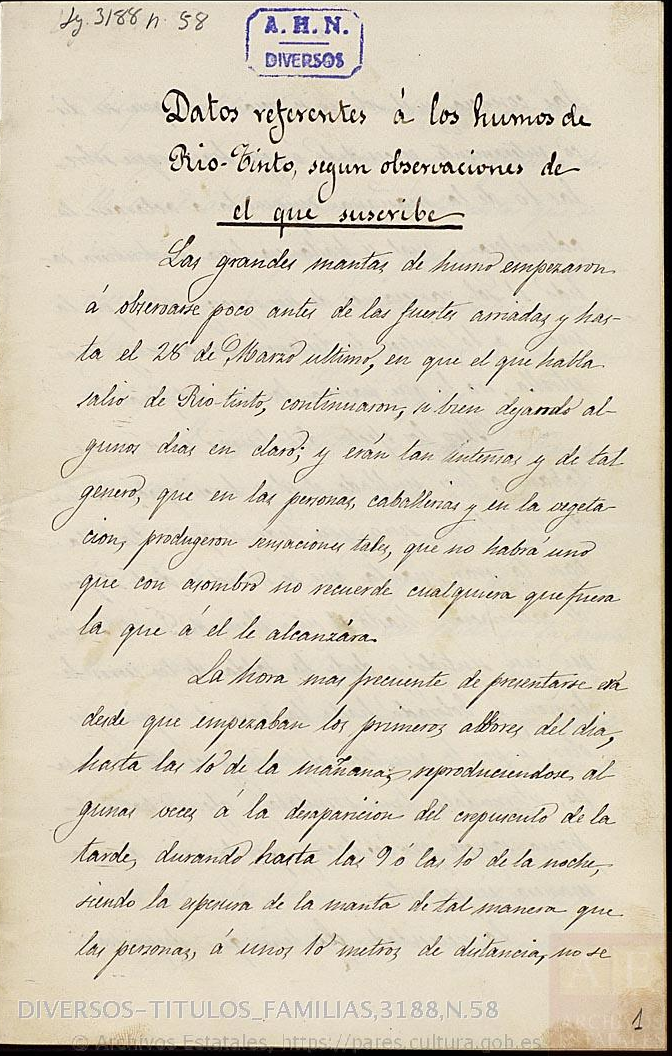 Lg. 3188 n. 58
A. H. N.
DIVERSOS
Datos referentes á los humos de
Rio-Tinto, segun observaciones de
el que suscribe
Las grandes mantas de humo empezaron
á observarse poco antes de las fuertes arriadas y has-
ta el 28 de Marzo ultimo, en que el que habla
salió de Rio-tinto, continuaron, si bien dejando al-
gunos dias en claro; y erán tan intensas y de tal
genero, que en las personas, caballerias y en la vegeta-
cion, produgeron sensaciones tales, que no habrá uno
que con asombro no recuerde cualquiera que fuera
la que á el le alcanzára.
La hora mas frecuente de presentarse erá
desde que empezaban los primeros albores del dia,
hasta las 10 de la mañana, reproduciendose al
gunas veces á la desaparicion del crepusculo de la
tarde, durando hasta las 9 ó las 10 de la noche,
siendo la espesura de la manta de tal manera que
las personas, á unos 10 metros de distancia, no se
1
DIVERSOS-TITULOS_FAMILIAS,3188,N.58
© Archivos Estatales, https://pares.cultura.gob.es